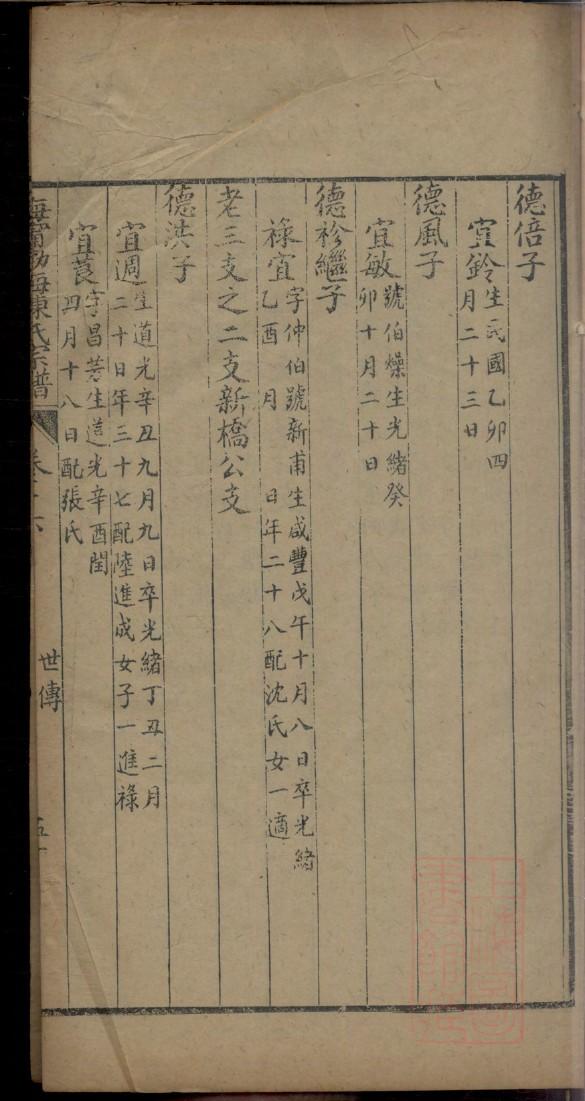 德倍子
宜鈴生民國乙卯四
月二十三日
德風子
宜敏號伯燥生光緒癸
卯十月二十日
德衫繼子
祿宜字仲伯號新甫生咸豐戊午十月八日卒光緒
乙酉 月 日年二十八配沈氏女一適
老三支之二支新橋公支
德洪子
宜週生道光辛丑九月九日卒光緒丁丑二月
二十日年三十七配陸進成女子一進祿
宜莨字昌芳生道光辛酉閏
四月十八日配張氏
海甯渤海陳氏宗譜
世傳